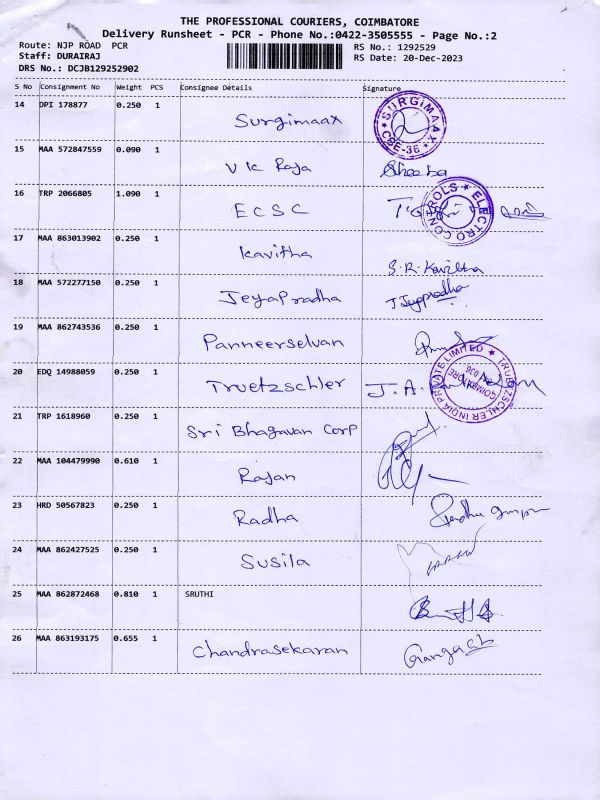 THE PROFESSIONAL COURIERS, COIMBATORE
Delivery Runsheet - PCR - Phone No.:0422-3505555 - Page No.:2
Route: NJP ROAD PCR
RS No.: 1292529
Staff: DURAIRAJ
RS Date: 20-Dec-2023
DRS No.: DCJB129252902
S No Consignment No Weight PCS Consignee Details Signature
14 DPI 178877 0.250 1 Surgimaax SURGIMAAX CBE-36
15 MAA 572847559 0.090 1 V K Raja
16 TRP 2066805 1.090 1 ECSC ELECTRO CONTROLS
17 MAA 863013902 0.250 1 Kavitha S.R. Kavitha
18 MAA 572277150 0.250 1 JeyaPradha J Jeyapradha
19 MAA 862743536 0.250 1 Panneerselvan
20 EDQ 14988059 0.250 1 Truetzschler TRUETZSCHLER INDIA PRIVATE LIMITED COIMBATORE
21 TRP 1618960 0.250 1 Sri Bhagavan Corp
22 MAA 104479990 0.610 1 Rajan
23 HRD 50567823 0.250 1 Radha
24 MAA 862427525 0.250 1 Susila
25 MAA 862872468 0.810 1 SRUTHI
26 MAA 863193175 0.655 1 Chandrasekaran